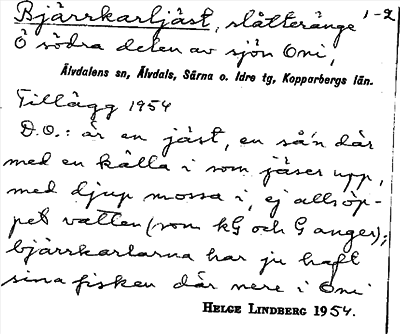 Bjärrkarljäst, slåtteränge 1-2
Ö södra delen av sjön Oni,
Älvdalens sn, Älvdals, Särna o. Idre tg, Kopparbergs län.
Tillägg 1954
D.O.: är en jäst, en så'n där
med en källa i som jäser upp,
med djup mossa i, ej alls öp-
pet vatten (som kG och G anger);
bjärrkarlarna har ju haft
sina fisken där nere i Oni
HELGE LINDBERG 1954.